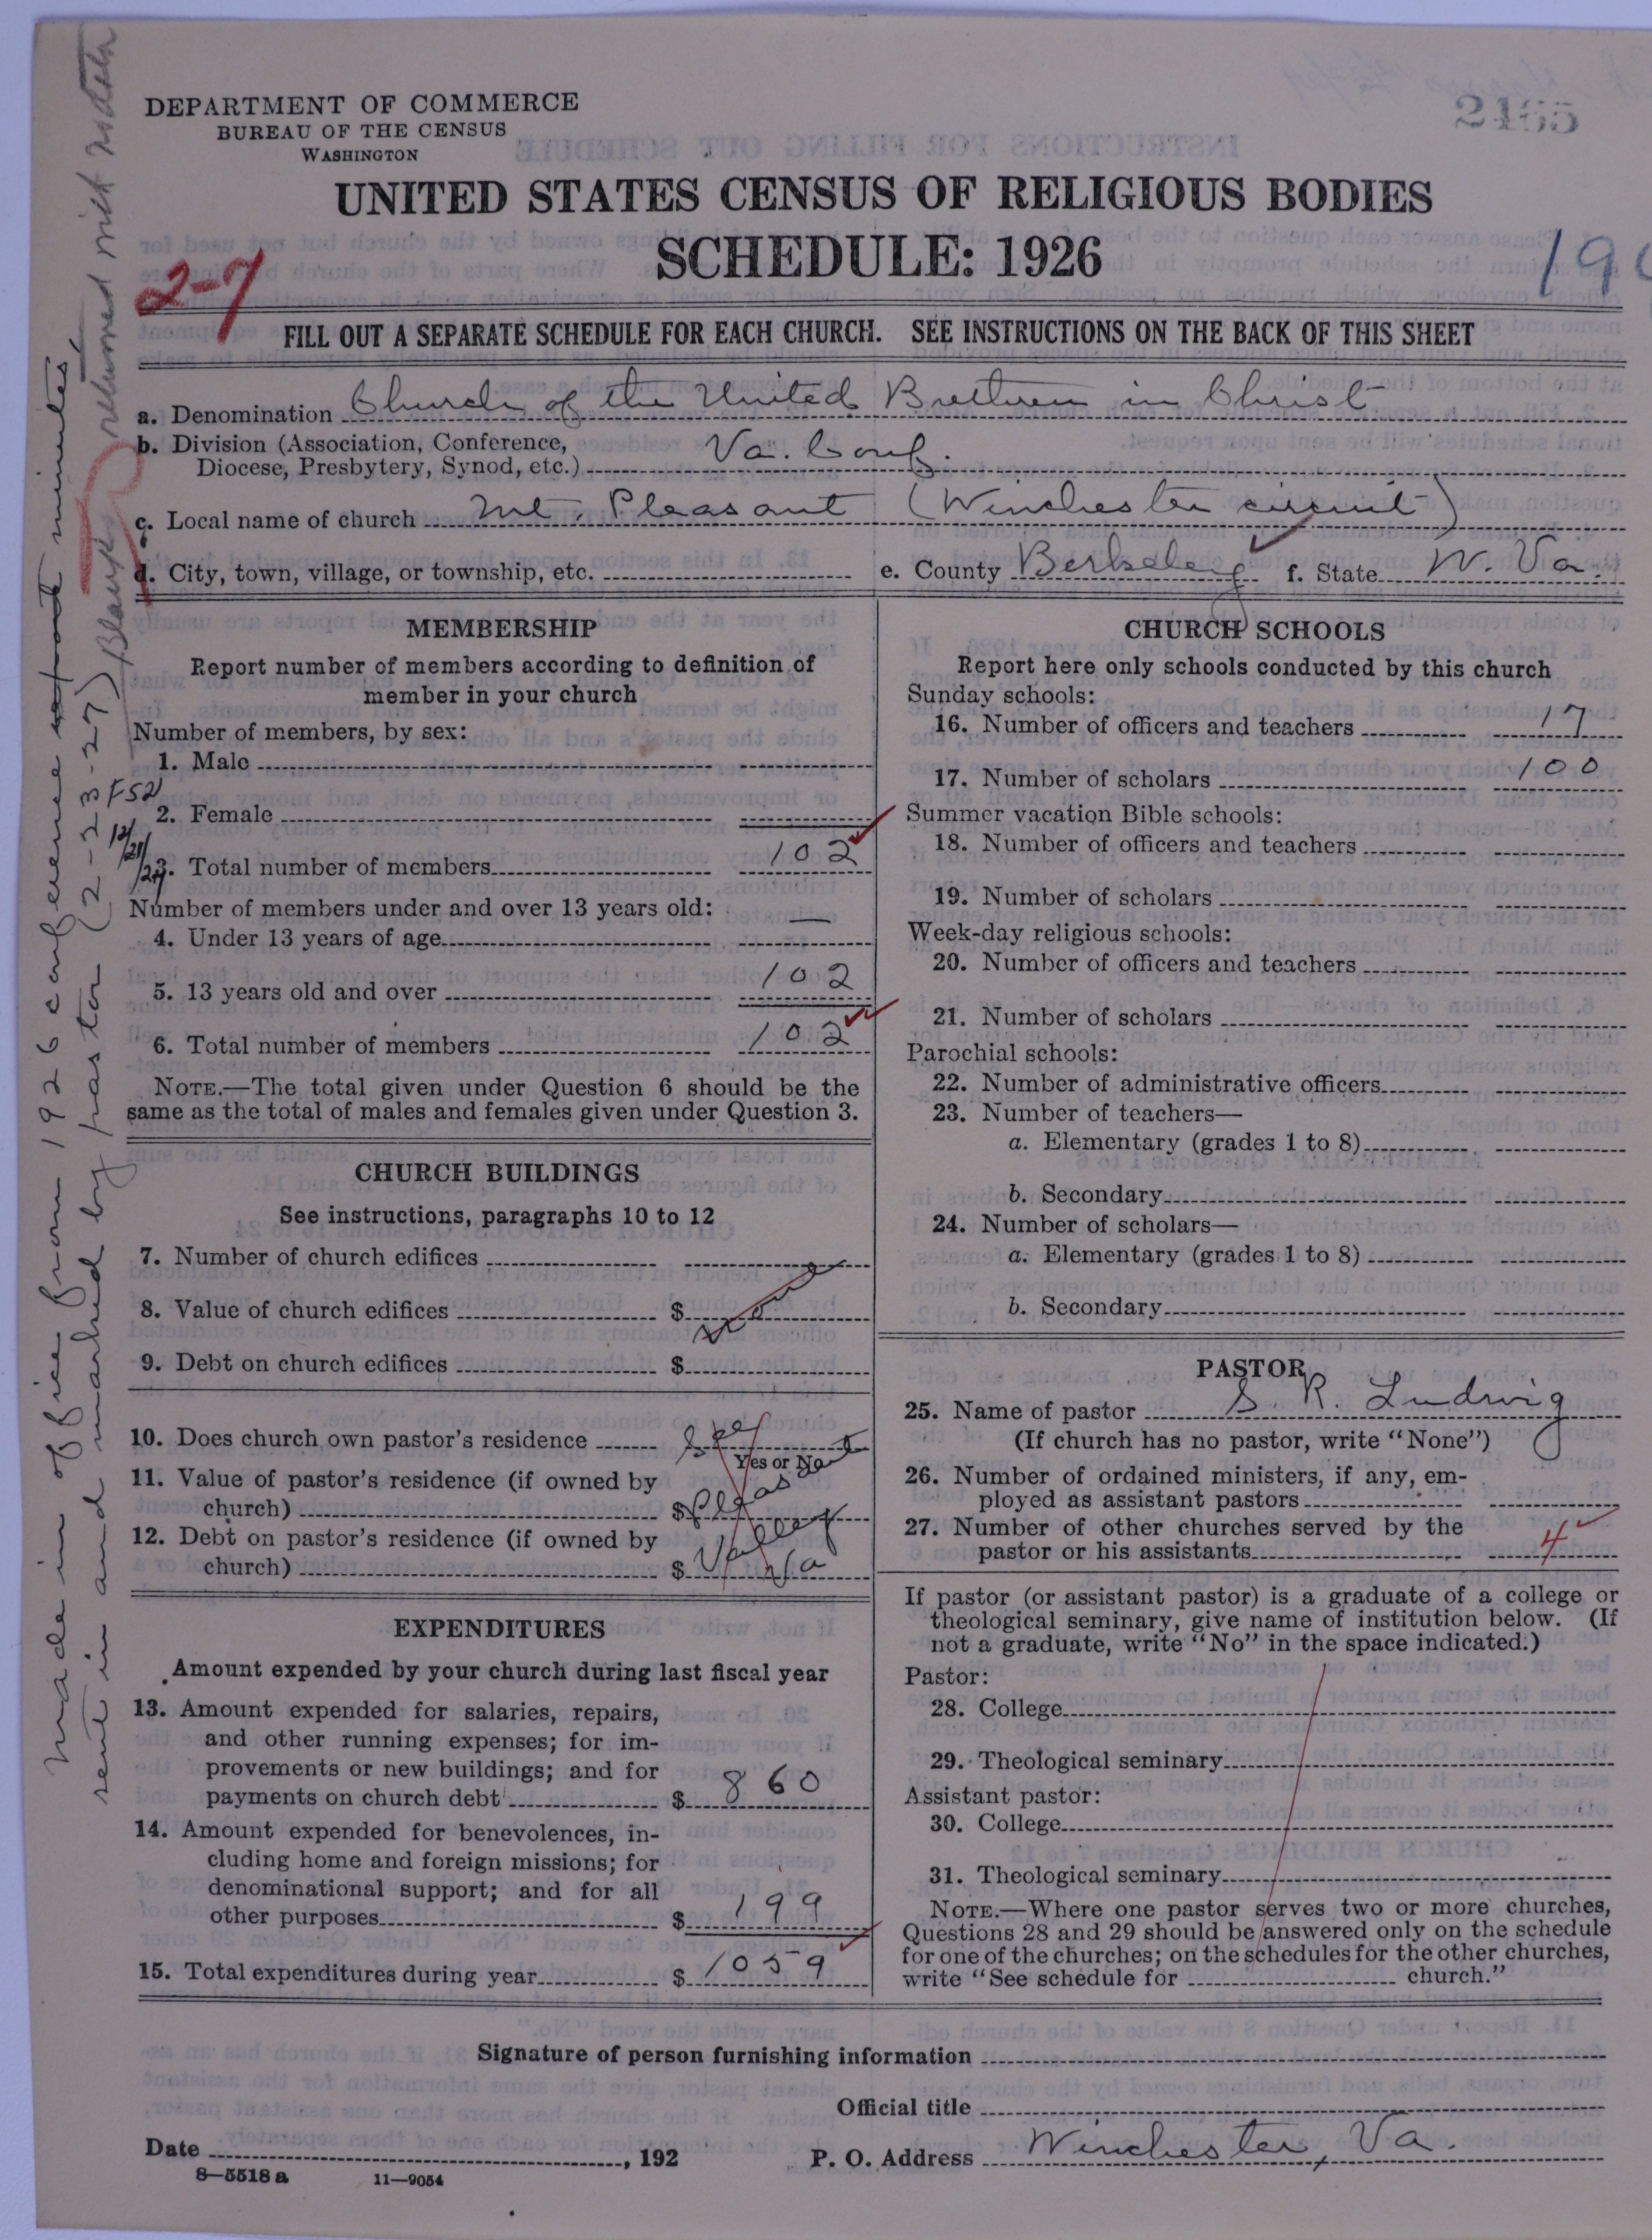 DEPARTMENT OF COMMERCE
BUREAU OF THE CENSUS
WASHINGTON
2465
UNITED STATES CENSUS OF RELIGIOUS BODIES
SCHEDULE: 1926
2-7
190
FILL OUT A SEPARATE SCHEDULE FOR EACH CHURCH. SEE INSTRUCTIONS ON THE BACK OF THIS SHEET
a. Denomination Church of the United Brethren in Christ
b. Division (Association, Conference,
Diocese, Presbytery, Synod, etc.) Va. Conf.
c. Local name of church Mt. Pleasant (Winchester circuit)
d. City, town, village, or township, etc.
e. County Berkeley f. State W. Va.
MEMBERSHIP
Report number of members according to definition of
member in your church
Number of members, by sex:
1. Male
F52
2. Female
12/21/27
3. Total number of members 102
Number of members under and over 13 years old:
4. Under 13 years of age —
5. 13 years old and over 102
6. Total number of members 102
NOTE.—The total given under Question 6 should be the
same as the total of males and females given under Question 3.
CHURCH BUILDINGS
See instructions, paragraphs 10 to 12
7. Number of church edifices
8. Value of church edifices $ none
9. Debt on church edifices $
10. Does church own pastor's residence See
Yes or No
11. Value of pastor's residence (if owned by
church) $ Pleasant
12. Debt on pastor's residence (if owned by
church) $ Valley Va
EXPENDITURES
Amount expended by your church during last fiscal year
13. Amount expended for salaries, repairs,
and other running expenses; for im-
provements or new buildings; and for
payments on church debt $ 860
14. Amount expended for benevolences, in-
cluding home and foreign missions; for
denominational support; and for all
other purposes $ 199
15. Total expenditures during year $ 1059
CHURCH SCHOOLS
Report here only schools conducted by this church
Sunday schools:
16. Number of officers and teachers 17
17. Number of scholars 100
Summer vacation Bible schools:
18. Number of officers and teachers
19. Number of scholars
Week-day religious schools:
20. Number of officers and teachers
21. Number of scholars
Parochial schools:
22. Number of administrative officers
23. Number of teachers—
a. Elementary (grades 1 to 8)
b. Secondary
24. Number of scholars—
a. Elementary (grades 1 to 8)
b. Secondary
PASTOR
25. Name of pastor S. R. Ludwig
(If church has no pastor, write "None")
26. Number of ordained ministers, if any, em-
ployed as assistant pastors
27. Number of other churches served by the
pastor or his assistants 4
If pastor (or assistant pastor) is a graduate of a college or
theological seminary, give name of institution below. (If
not a graduate, write "No" in the space indicated.)
Pastor:
28. College
29. Theological seminary
Assistant pastor:
30. College
31. Theological seminary
NOTE.—Where one pastor serves two or more churches,
Questions 28 and 29 should be answered only on the schedule
for one of the churches; on the schedules for the other churches,
write "See schedule for church."
Signature of person furnishing information
Official title
Date , 192
P. O. Address Winchester, Va.
8—5518 a 11—9054
Made in office from 1926 conference minutes,
sent in and marked by pastor (2-23-27) Blank returned with notation